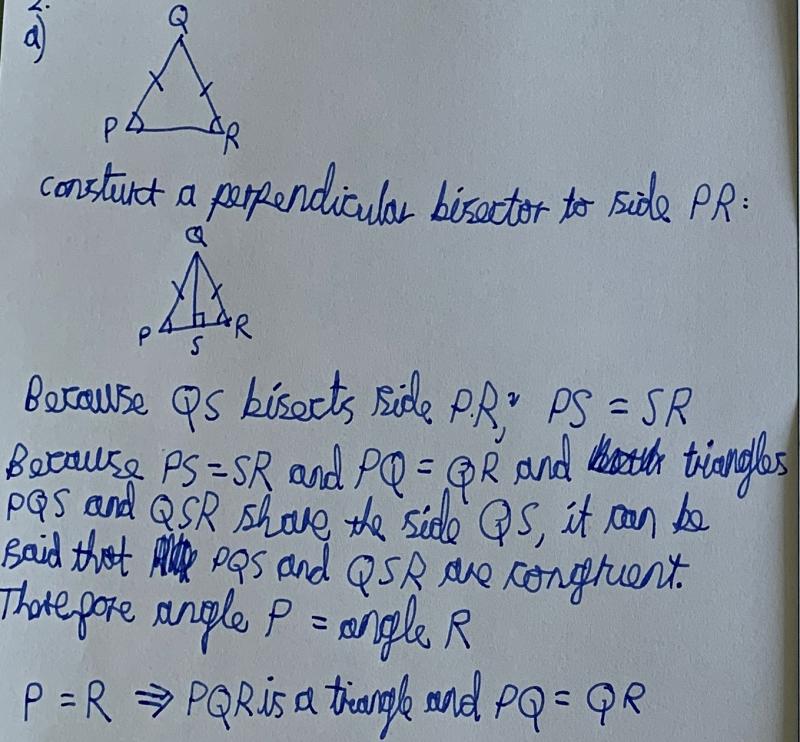 2.
a)
Q
P
R
consturct a perpendicular bisector to side PR:
Q
P
R
S
Because QS bisects side PR, PS = SR
Because PS = SR and PQ = QR and triangles
PQS and QSR share the side QS, it can be
said that PQS and QSR are congruent.
Therefore angle P = angle R
P = R ⇒ PQR is a triangle and PQ = QR